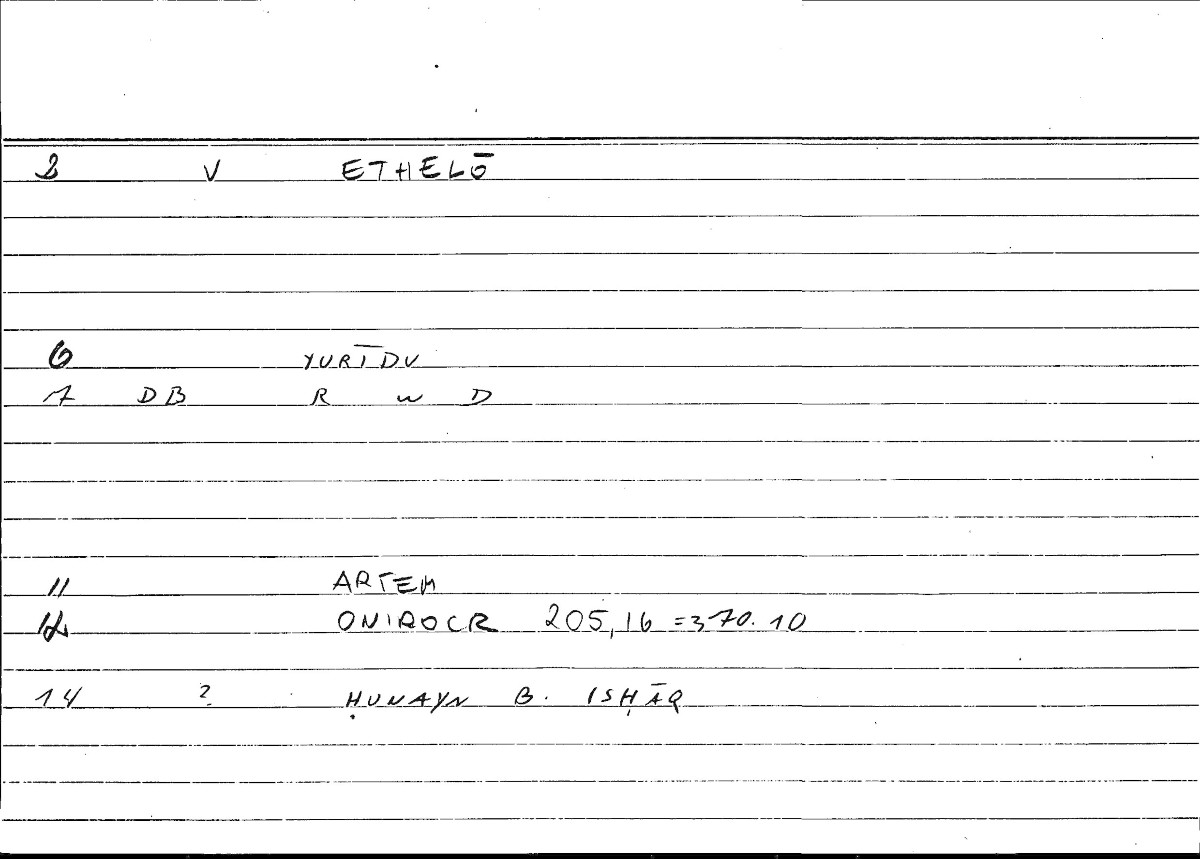 2 V ETHELŌ
6 YURĪDU
7 DB R W D
11 ARTEM
12 ONIROCR 205,16 = 370.10
14 ? ḤUNAYN B. ISḤĀQ